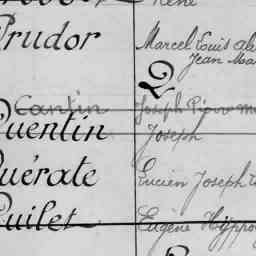 René
Prudor Marcel Louis
Jean
Q
Cantin Joseph
Quentin Joseph
Quérate Lucien Joseph
Quilet Eugène